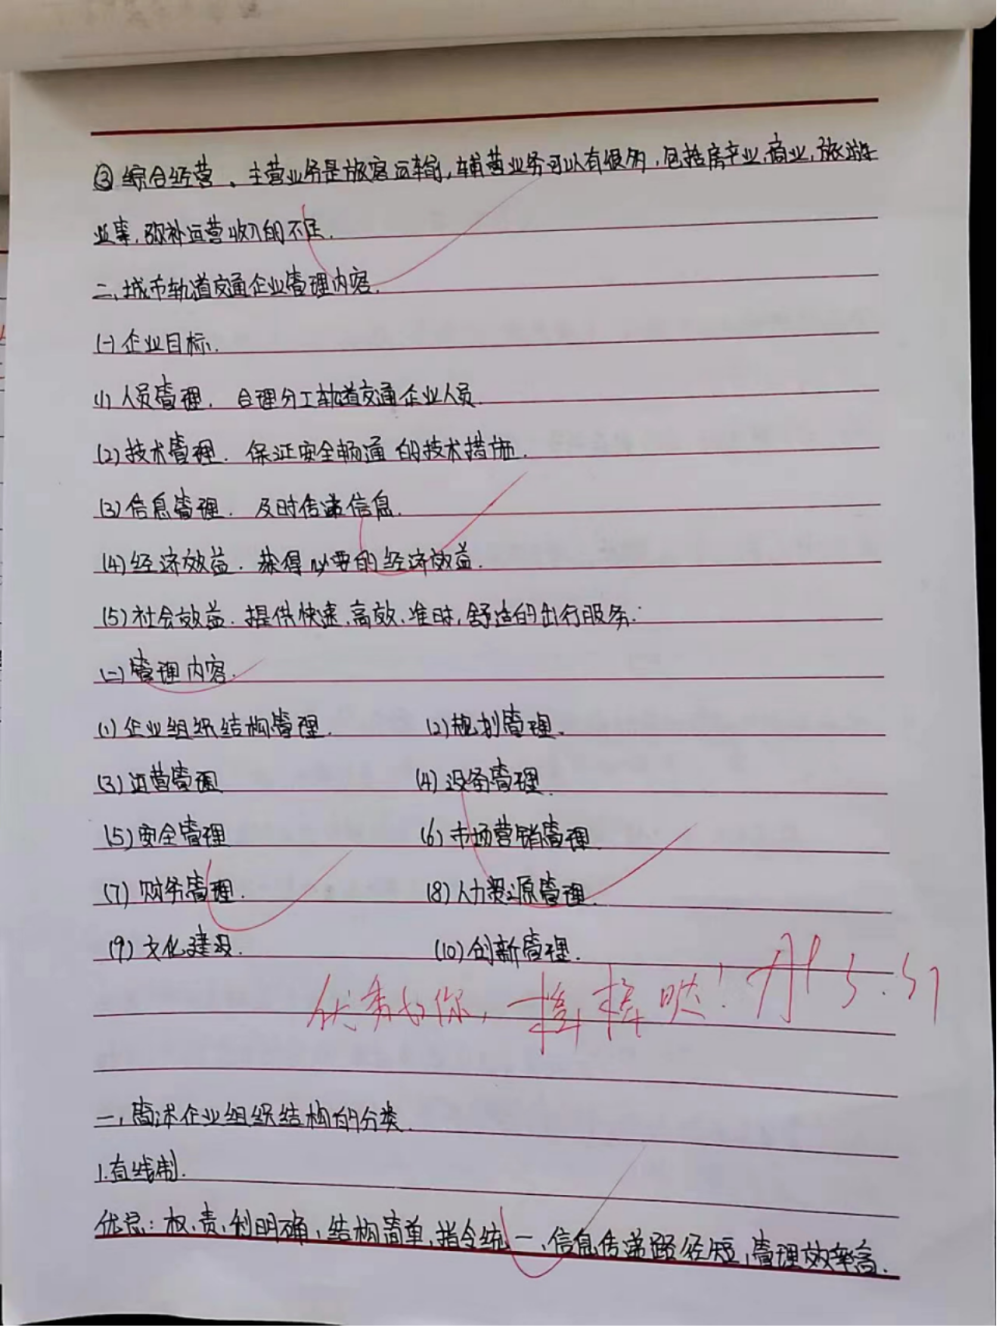 ③综合经营、主营业务是旅客运输,辅营业务可以有很多,包括房产业,商业,旅游
业等,弥补运营收入的不足.
二、城市轨道交通企业管理内容.
(一)企业目标.
(1)人员管理. 合理分工轨道交通企业人员.
(2)技术管理. 保证安全畅通的技术措施.
(3)信息管理. 及时传递信息.
(4)经济效益. 获得必要的经济效益.
(5)社会效益. 提供快速、高效、准时,舒适的出行服务.
(二)管理内容.
(1)企业组织结构管理. (2)规划管理.
(3)运营管理 (4)设备管理.
(5)安全管理 (6)市场营销管理.
(7)财务管理. (8)人力资源管理.
(9)文化建设. (10)创新管理.
优秀的你,棒棒哒! 5.31
一、简述企业组织结构的分类.
1.直线制.
优点:权、责、利明确、结构简单,指令统一、信息传递路径短,管理效率高.